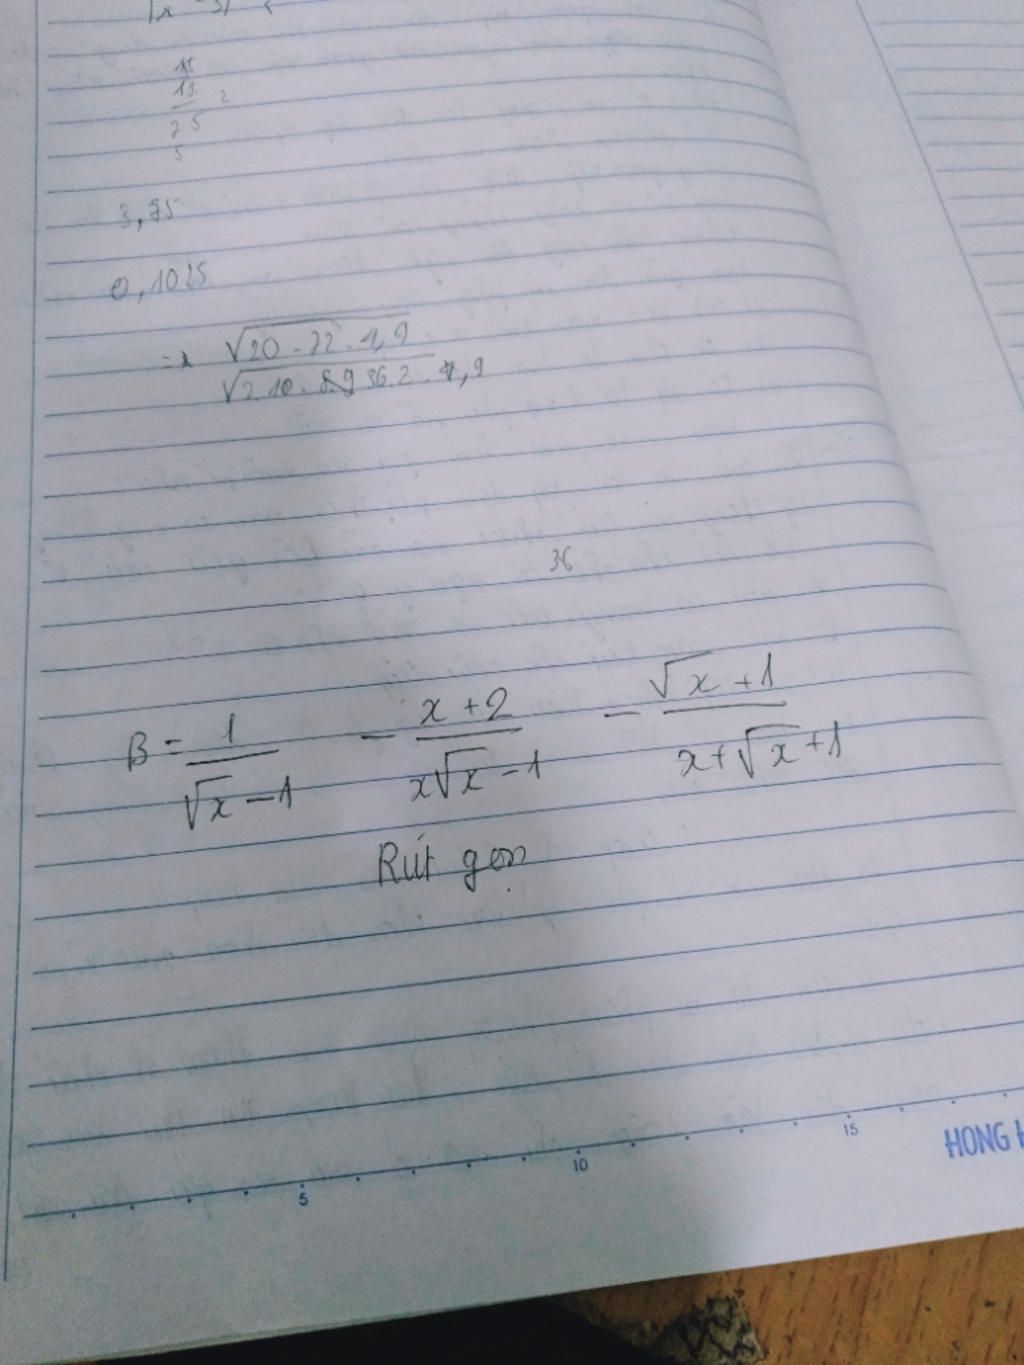 11
11
2
25
5
3,75
0,1025
= √20.72.4,9
√2.10. 36.2.4,9
36
B = 1/(√x-1) - (x+2)/(x√x-1) - (√x+1)/(x+√x+1)
Rút gọn
5 10 15
HONG H